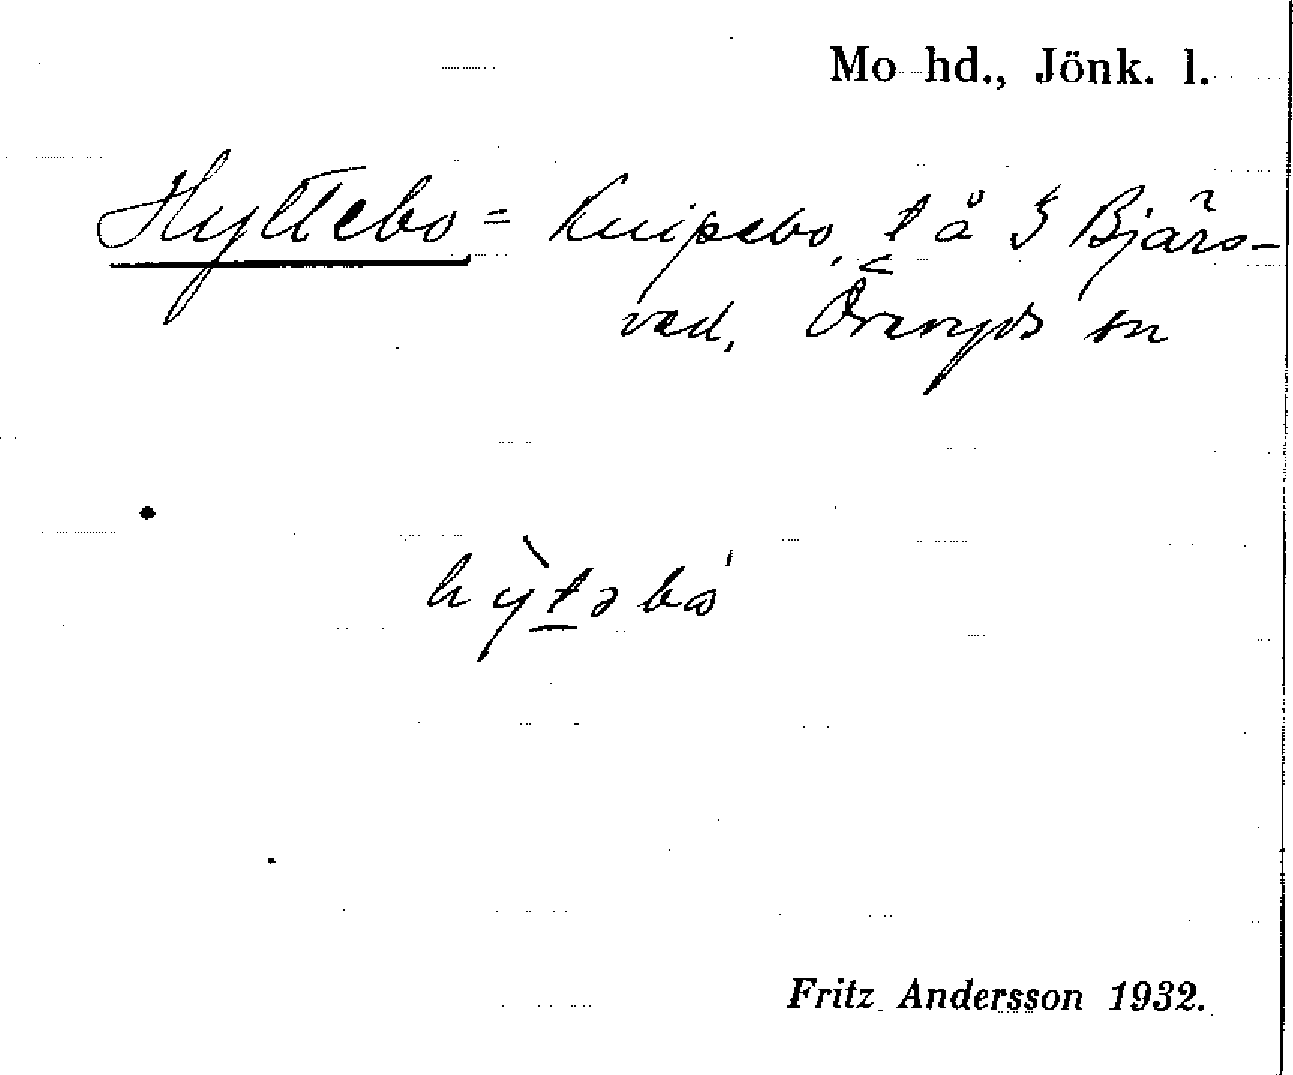 Mo hd., Jönk. l.
Hyltebo = Knipebo, t å S Bjärs-
vad, Öreryds sn
hỳtəbó
Fritz Andersson 1932.